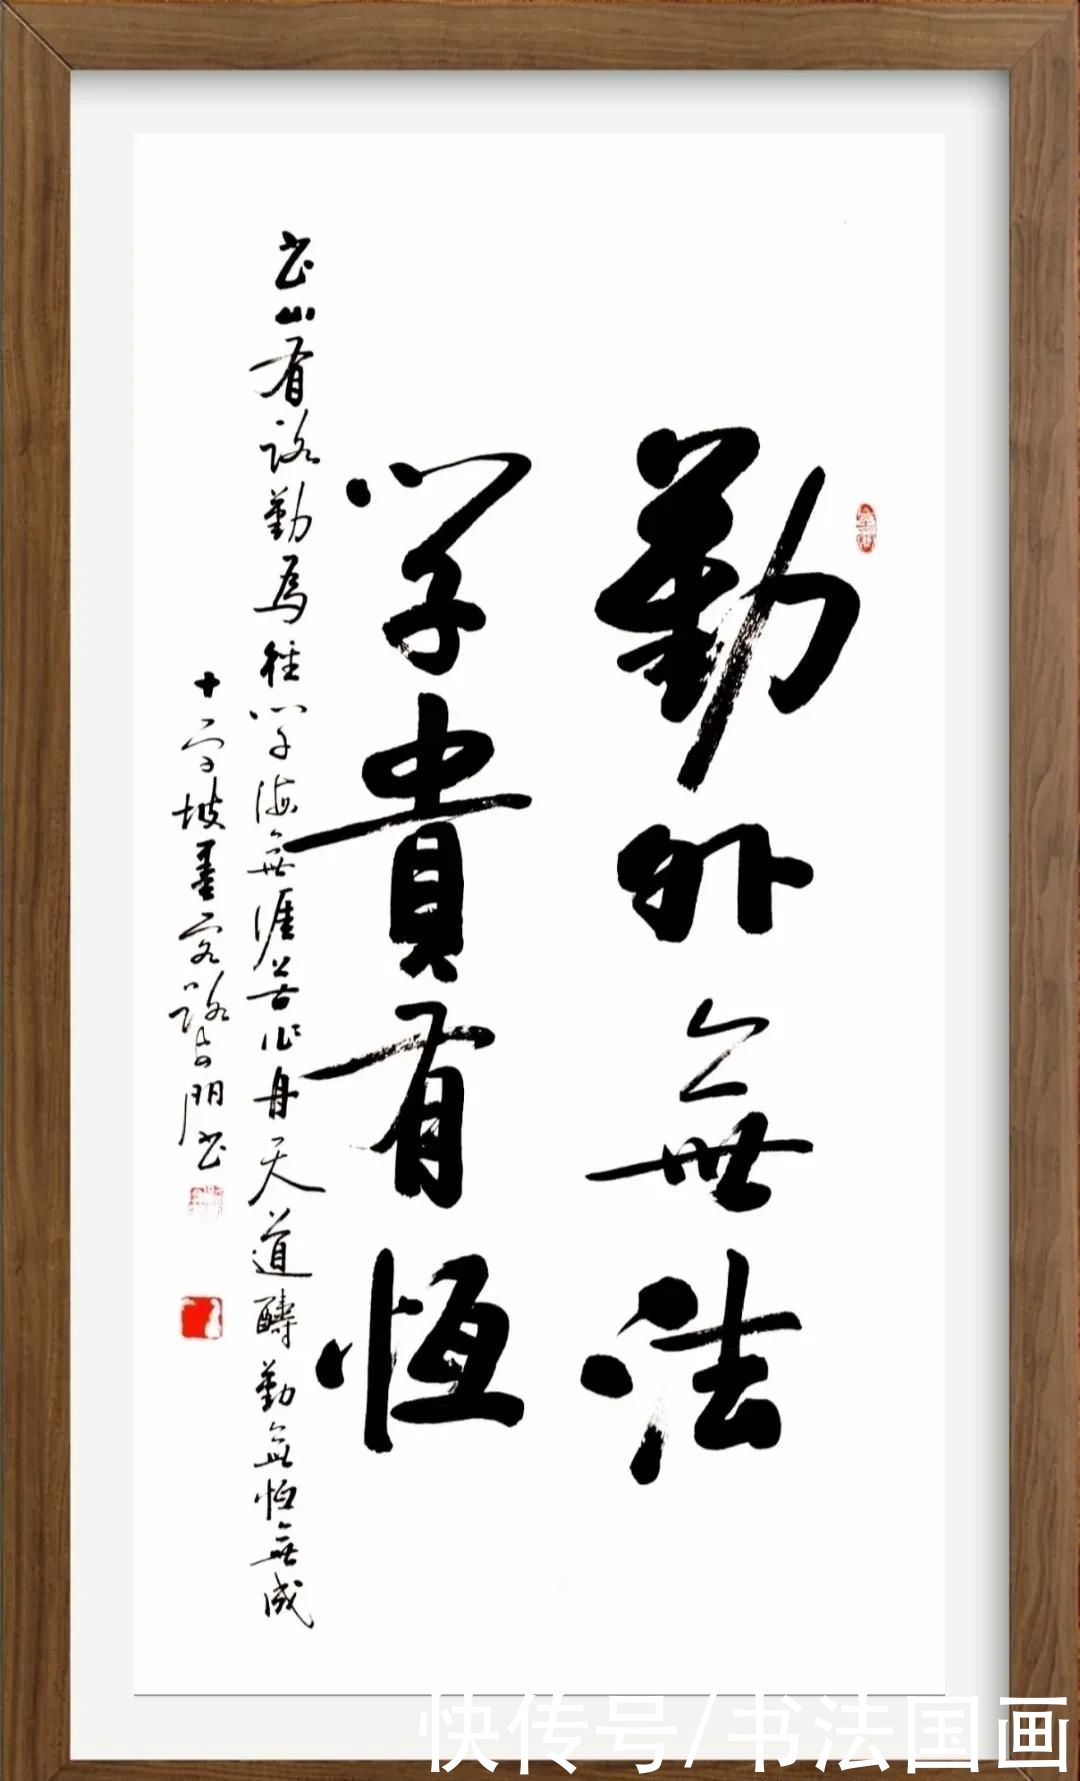 勤外無法
学貴有恒
书山有路勤為径学海無涯苦作舟天道醻勤無恒無成
十字坡墨客路門书
快传号/书法国画